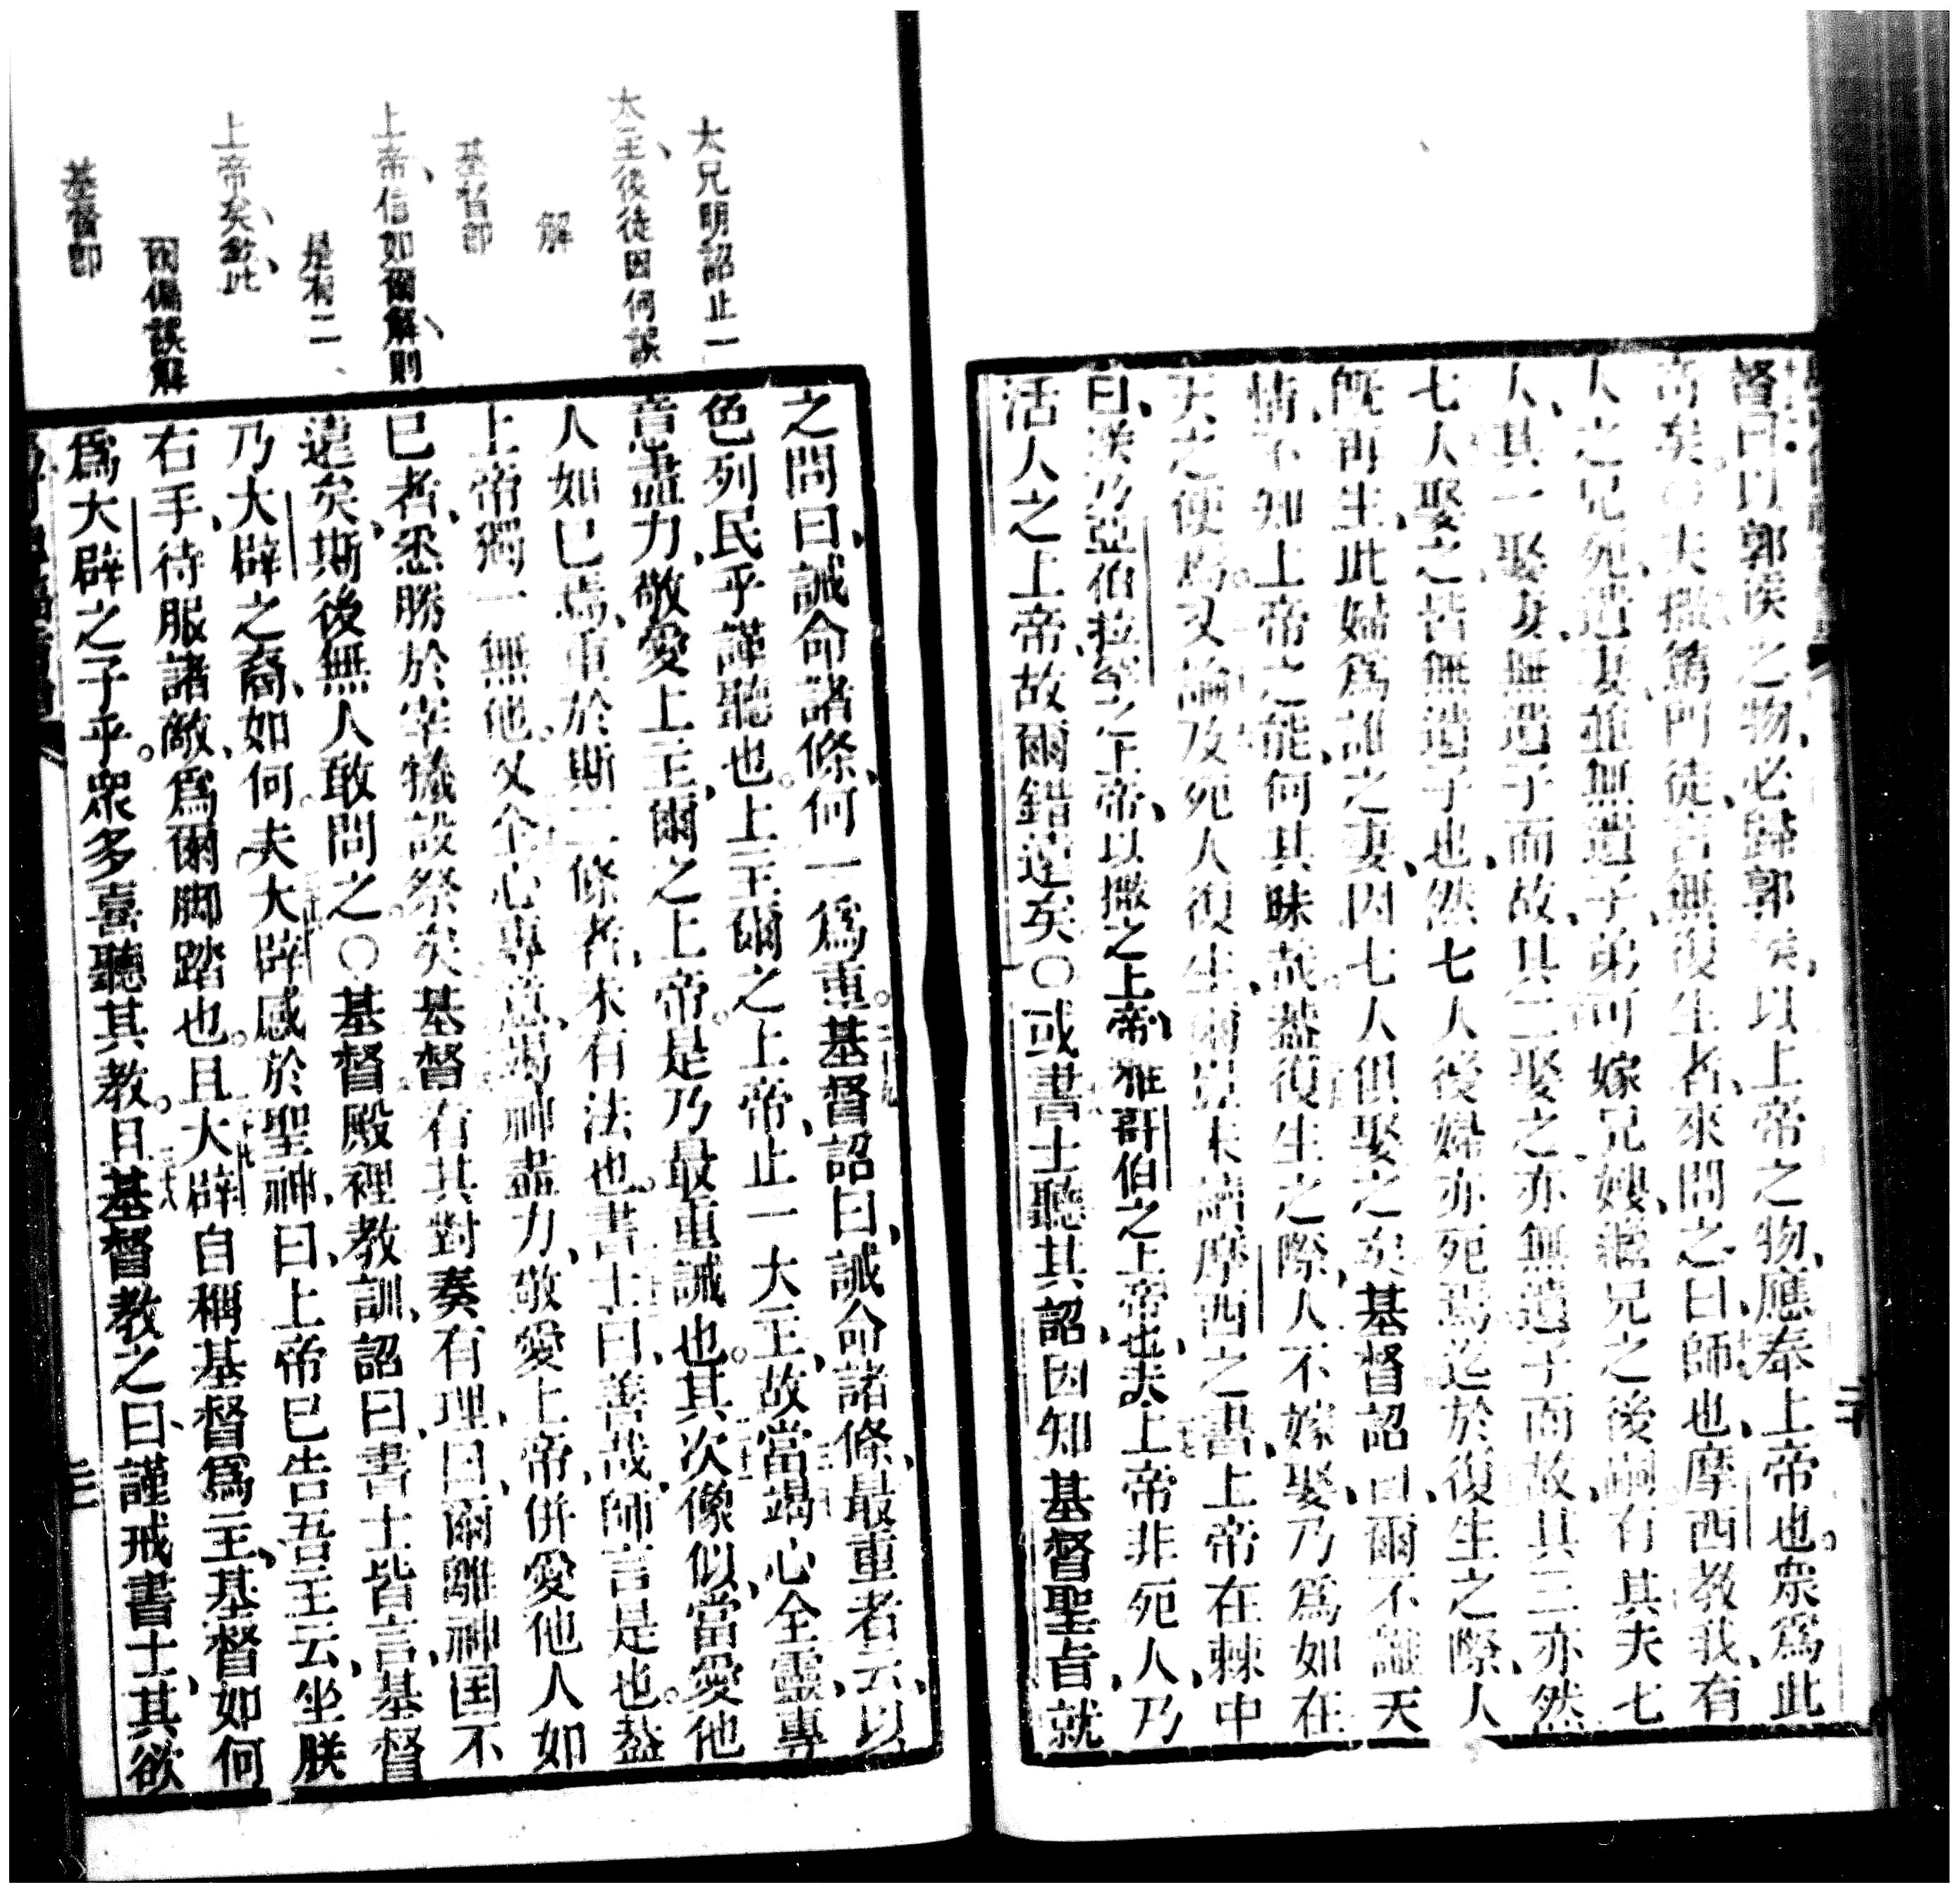 督曰以郭侯之物必歸郭侯以上帝之物應奉上帝也衆爲此
奇矣○夫撒篤門徒言無復生者來問之曰師也摩西教我有
人之兄死遺妻並無遺子弟可嫁兄嫂繼兄之後嗣有其夫七
人其一娶妻無遺子而故其二娶之亦無遺子而故其三亦然
七人娶之皆無遺子也然七人後婦亦死焉迄於復生之際人
既再生此婦爲誰之妻因七人俱娶之矣基督詔曰爾不識天
情不知上帝之能何其昧哉蓋復生之際人不嫁娶乃爲如在
天之使焉又論及死人復生爾豈未讀摩西之書上帝在棘中
曰我乃亞伯拉罕之上帝以撒之上帝雅哥伯之上帝也夫上帝非死人乃
活人之上帝故爾錯違矣○或書士聽其詔因知基督聖旨就
二十
大兄明詔止一
大主後徒因何誤
解
基督卽
上帝信如爾解則
是有二
上帝矣欽此
爾偏誤解
基督卽
之問曰誡命諸條何一爲重基督詔曰誡命諸條最重者云以
色列民乎謹聽也上主爾之上帝止一大主故當竭心全靈專
意盡力敬愛上主爾之上帝是乃最重誡也其次像似當愛他
人如已焉重於斯二條者未有法也書士曰善哉師言是也蓋
上帝獨一無他又全心專意竭神盡力敬愛上帝併愛他人如
已者悉勝於宰犧設祭矣基督有其對奏有理曰爾離神囯不
遠矣斯後無人敢問之○基督殿裡教訓詔曰書士皆言基督
乃大辟之裔如何夫大辟感於聖神曰上帝已告吾主云坐朕
右手待服諸敵爲爾脚踏也且大辟自稱基督爲主基督如何
爲大辟之子乎衆多喜聽其教且基督教之曰謹戒書士其欲
二十一